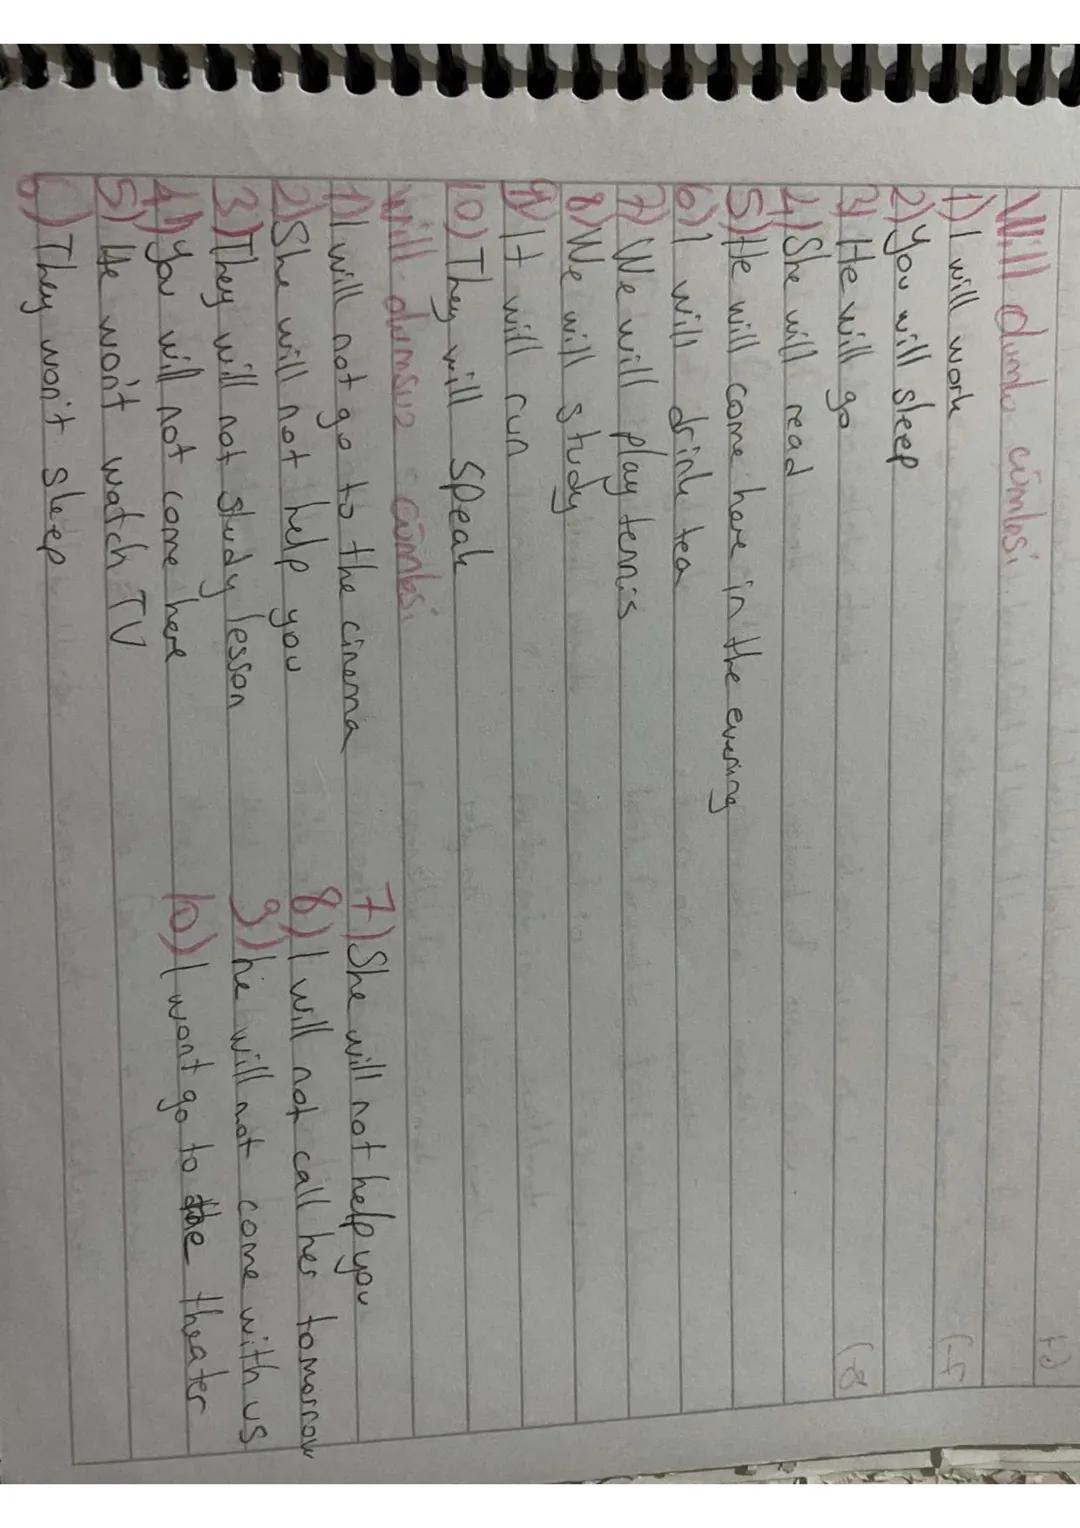 Will dumlo cümlesi
1) I will work
2) you will sleep
3) He will go
4) She will read
5) He will come here in the evening
6) I will drink tea
7) We will play tennis
8) We will study
9) It will run
10) They will speak
will dumsuz cümlesi
1) I will not go to the cinema
2) She will not help you
3) They will not study lesson
4) you will not come here
5) He won't watch TV
6) They won't sleep
7) She will not help you
8) I will not call her tomorrow
9) he will not come with us
10) I wont go to the theater